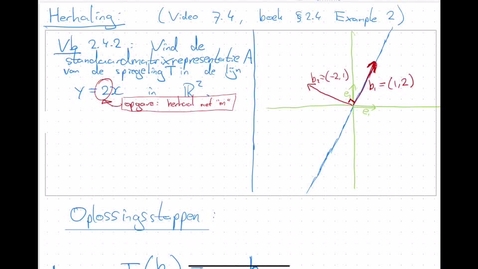 Herhaling: (Video 7.4, boek § 2.4 Example 2)
Vb 2.4.2: Vind de
standaardmatrixrepresentatie A
van de spiegeling T in de lijn
y = 2x in ℝ².
opgave: herhaal met "m"
b₁=(-2,1)
b₁=(1,2)
e₂
e₁
Oplossingsstappen:
T(b
b